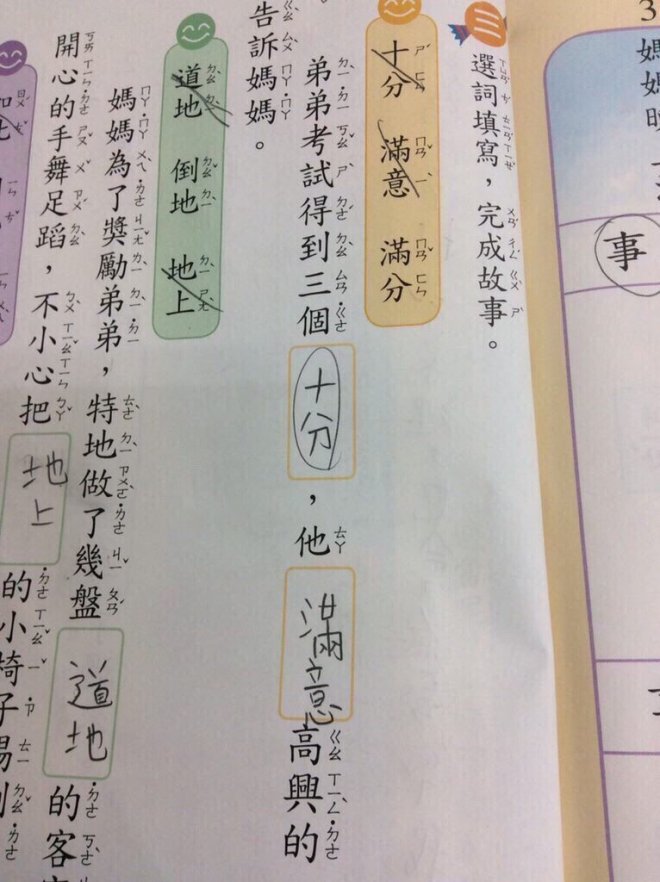 3
媽媽
事
三
選詞填寫，完成故事。
十分 滿意 滿分
弟弟考試得到三個十分，他滿意高興的
告訴媽媽。
道地 倒地 地上
媽媽為了獎勵弟弟，特地做了幾盤道地的客
開心的手舞足蹈，不小心把地上的小椅子踢倒